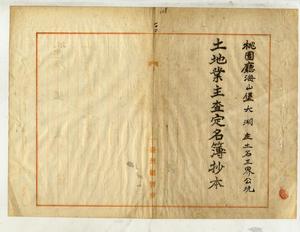 桃園廳海山堡大湖庄土名王界公坑
土地業主查定名簿抄本